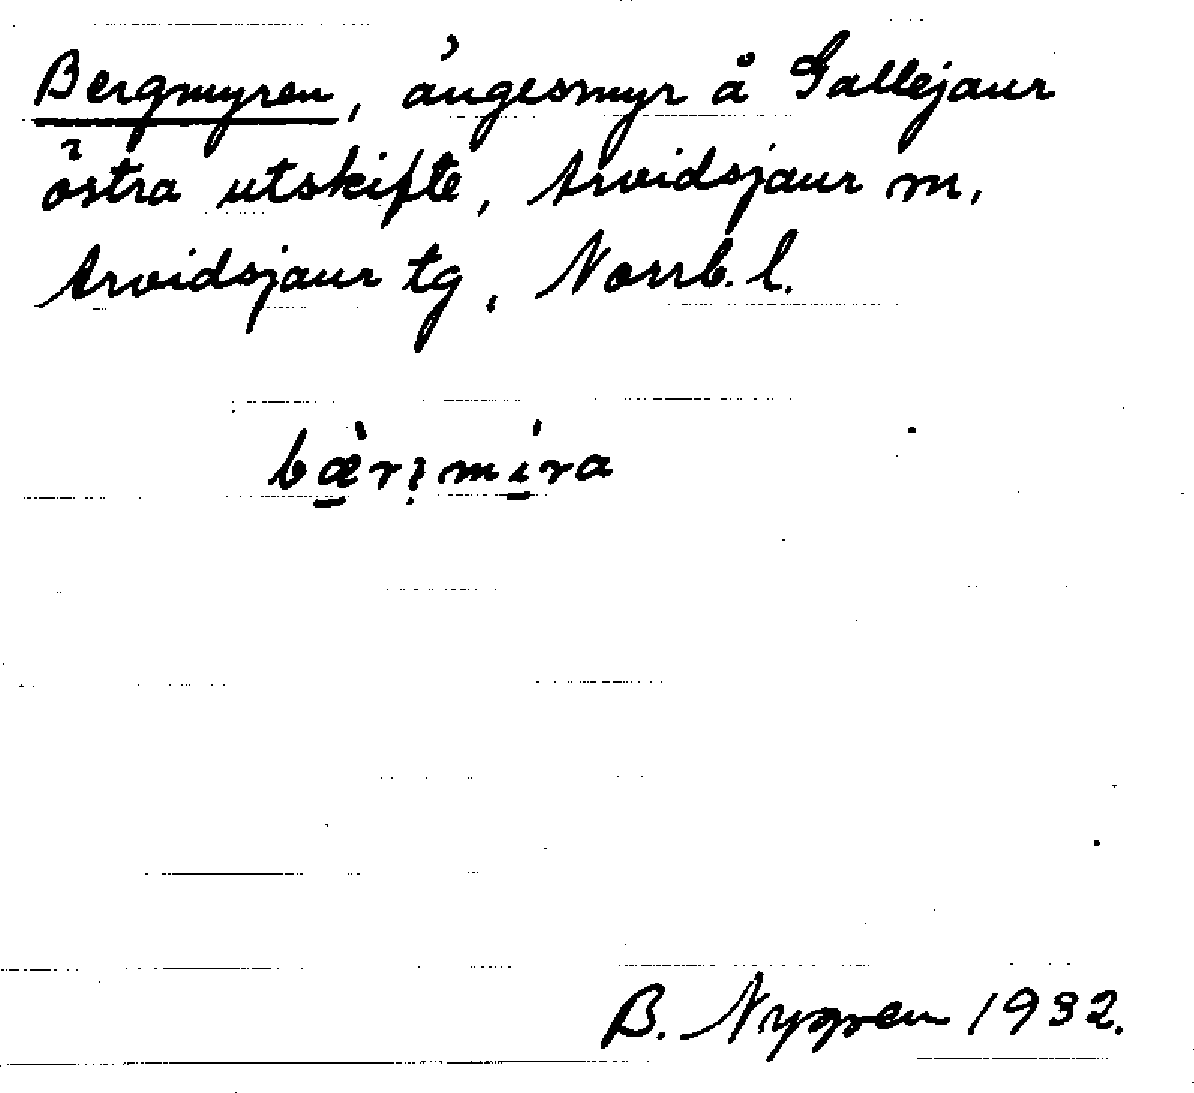 Bergmyren, ängesmyr å Gallejaur
östra utskifte, Arvidsjaur sn,
Arvidsjaur tg, Norrb. l.
bæ̀rʒmíra
B. Nygren 1932.